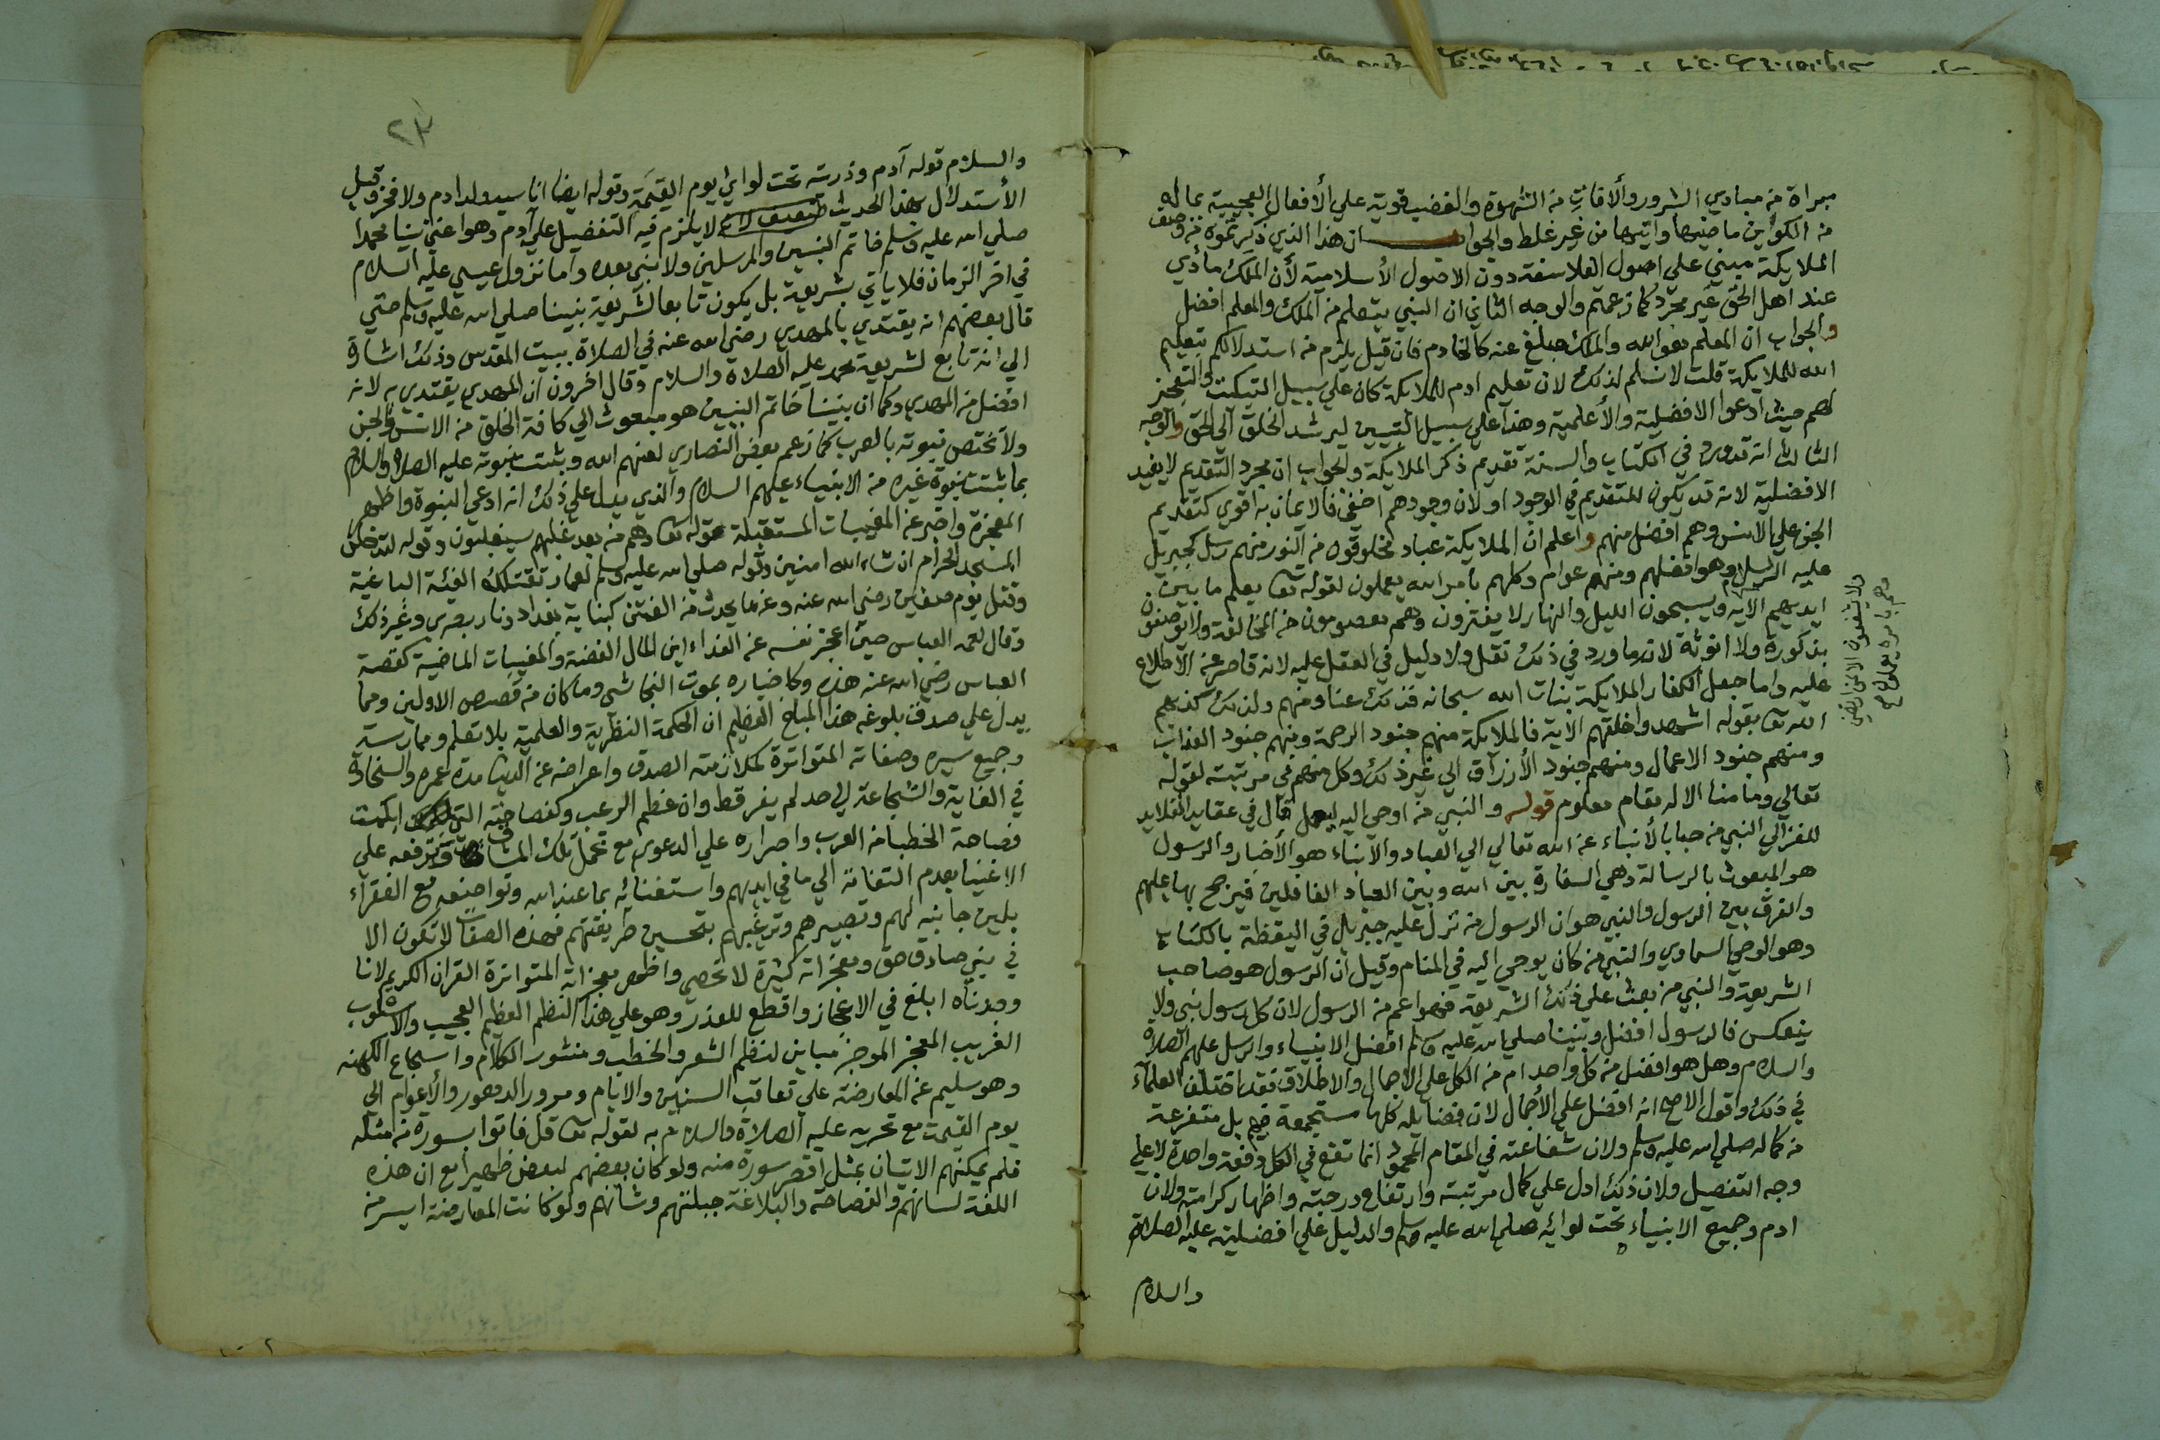 مبراة من مبادي الشرور والأفات من الشهوة والغضب قوية علي الأفعال العجيبة عالمة
من الكواين ماضيها واتيها من غير غلط والجواب ان هذا الذي ذكرتموه من وصف
الملايكة مبني علي اصول الفلاسفة دون الاصول الأسلامية لأن الملك مادي
عند اهل الحق غير مجرد كما زعمتم والوجه الثاني ان النبي يتعلم من الملك والمعلم افضل
والجواب ان المعلم هو الله والملك مبلغ عنه كالخادم فان قيل يلزم من استدلالكم بتعليم
الله للملايكة قلت لا نسلم لذلك لان تعليم ادم للملايكة كان علي سبيل التبكيت والتعجيز
لهم حيث ادعوا الافضلية والأعلمية وهذا علي سبيل التبيين ليرشد الخلق الي الحق والوجه
الثالث انه قد ورد في الكتاب والسنة تقديم ذكر الملايكة والجواب ان مجرد التقديم لا يفيد
الافضلية لانه قد يكون للمتقديم في الوجود او لان وجودهم اخفي فالايمان به اقوي كتقديم
الجن علي الانس وهم افضل منهم واعلم ان الملايكة عباد مخلوقون من النور منهم رسل كجبريل
عليه السلام وهو افضلهم ومنهم عوام وكلهم بأمر الله يعملون لقوله تعا يعلم ما بين
ايديهم الاية ويسبحون الليل والنهار لا يفترون وهم معصومون من المخالفة ولا يوصفون
بذكورة ولا انوثة لانه ما ورد في ذلك نقل ولا دليل في العقل عليه لانه قاصر عن الاطلاع
عليه واما جعل الكفار الملايكة بنات الله سبحانه فذلك عنادا منهم ولذلك كذبهم
الله تعا بقوله اشهدوا خلقهم الاية فالملايكة منهم جنود الرحمة ومنهم جنود العذاب
ومنهم جنود الاعمال ومنهم جنود الأرزاق الي غير ذلك وكل منهم في مرتبته لقوله
تعالي وما منا الا له مقام معلوم قوله والنبي من اوحي اليه قال في عقايد القلايد
للغزالي النبي من حبا بالأنباء عن الله تعالي الي العباد والأنباء هو الأخبار والرسول
هو المبعوث بالرسالة وهي السفارة بين الله وبين العباد الغافلين فيزح بها عللهم
والفرق بين الرسول والنبي هو ان الرسول من نزل عليه جبريل في اليقظة بالكتاب
وهو الوحي السماوي والنبي من كان يوحي اليه في المنام وقيل ان الرسول هو صاحب
الشريعة والنبي من بعث علي تلك الشريعة فهو اعم من الرسول لان كل رسول نبي ولا
ينعكس فالرسول افضل ونبينا صلي الله عليه وسلم افضل الانبياء والرسل عليهم الصلاة
والسلام وهل هو افضل من كل واحد ام من الكل علي الاجمال والاطلاق فقد اختلف العلماء
في ذلك واقول الاصح انه افضل علي الأجمال لان فضايله كلها مستجمعة فيهم بل متفرعة
من كماله صلي الله عليه وسلم ولان شفاعته في المقام المحمود انما تقع في الكل دفعة واحدة لا علي
وجه التفصيل ولان ذلك ادل علي كمال مرتبته وارتفاع درجته واظهار كرامته ولان
ادم وجميع الانبياء تحت لوائه صلي الله عليه وسلم والدليل علي افضليته عليه الصلاة
والسلام
ولا يشفعون الا لمن ارتضي
وهم بامره يعملون صح
٢٣
والسلام قوله آدم وذريته تحت لوائي يوم القيمة وقوله ايضا انا سيد ولد ادم ولا فخر وقيل
الأستدلال بهذا الحديث ضعيف لانه لا يلزم فيه التفضيل علي آدم وهو اعني نبينا محمدا
صلي الله عليه وسلم خاتم النبيين والمرسلين ولا نبي بعده واما نزول عيسي عليه السلام
في اخر الزمان فلا ياتي بشريعة بل يكون تابعا لشريعة نبينا صلي الله عليه وسلم حتي
قال بعضهم انه يقتدي بالمهدي رضي الله عنه في الصلاة ببيت المقدس وذلك اشارة
الي انه تابع لشريعة محمد عليه الصلاة والسلام وقال اخرون ان المهدي يقتدي به لانه
افضل من المهدي وكما ان نبينا خاتم النبيين هو مبعوث الي كافة الخلق من الانس والجن
ولا تختص نبوته بالعرب كما زعم بعض النصاري لعنهم الله وثبتت نبوته عليه الصلاة والسلام
بما ثبتت نبوة غيره من الانبياء عليهم السلام والذي يدل علي ذلك انه ادعي النبوة واظهر
المعجزة واخبر عن المغيبات المستقبلة كقوله تعا وهم من بعد غلبهم سيغلبون وقوله لتدخلن
المسجد الحرام ان شاء الله امنين وقوله صلي الله عليه وسلم لعمار تقتلك الفئة الباغية
وقتل يوم صفين رضي الله عنه وعن ما يحدث من الفتن كبناية بغداد ونار بصري وغير ذلك
وقال لعمه العباس حين اعجز نفسه عن الفداء اين المال الفضة والمغيبات الماضية كقصة
العباس رضي الله عنه هذه وكاخباره بموت النجاشي وما كان من قصص الاولين ومما
يدل علي صدقه بلوغه هذا المبلغ العظيم ان الحكمة النظرية والعلمية بلا تعلم وممارسة
وجميع سيره وصفاته المتواترة كملازمته الصدق واعراضه عن الدنيا مدة عمره والسخاوة
في الغاية والشجاعة الي حد لم يفر قط وان عظم الرعب وكفصاحته التي ابكمت
فصاحة الخطبا من العرب واصراره علي الدعوي مع تحمل تلك المشاق وترفعه علي
الاغنيا بعدم التفاته الي ما في ايديهم واستغنائه بما عند الله وتواضعه مع الفقراء
بلين جانبه لهم وتصبيرهم وترغيبهم بتحسين طريقتهم فهذه الصفات لا تكون الا
في نبي صادق حق ومعجزاته كثيرة لا تحصي واظهر معجزاته المتواترة القران الكريم لانا
وجدناه ابلغ في الاعجاز واقطع للعذر وهو علي هذا النظم العظيم العجيب والاسلوب
الغريب المعجز الموجز مباين لنظم الشعر والخطب ومنثور الكلام واسجاع الكهنه
وهو سليم عن المعارضة علي تعاقب السنين والايام ومرور الدهور والأعوام الي
يوم القيمة مع تحديه عليه الصلاة والسلام به لقوله تعا قل فاتوا بسورة من مثله
فلم يمكنهم الاتيان بمثل اقصر سورة منه ولو كان بعضهم لبعض ظهيرا مع ان هذه
اللغة لسانهم والفصاحة والبلاغة جبلتهم وشانهم ولو كانت المعارضة ايسر من